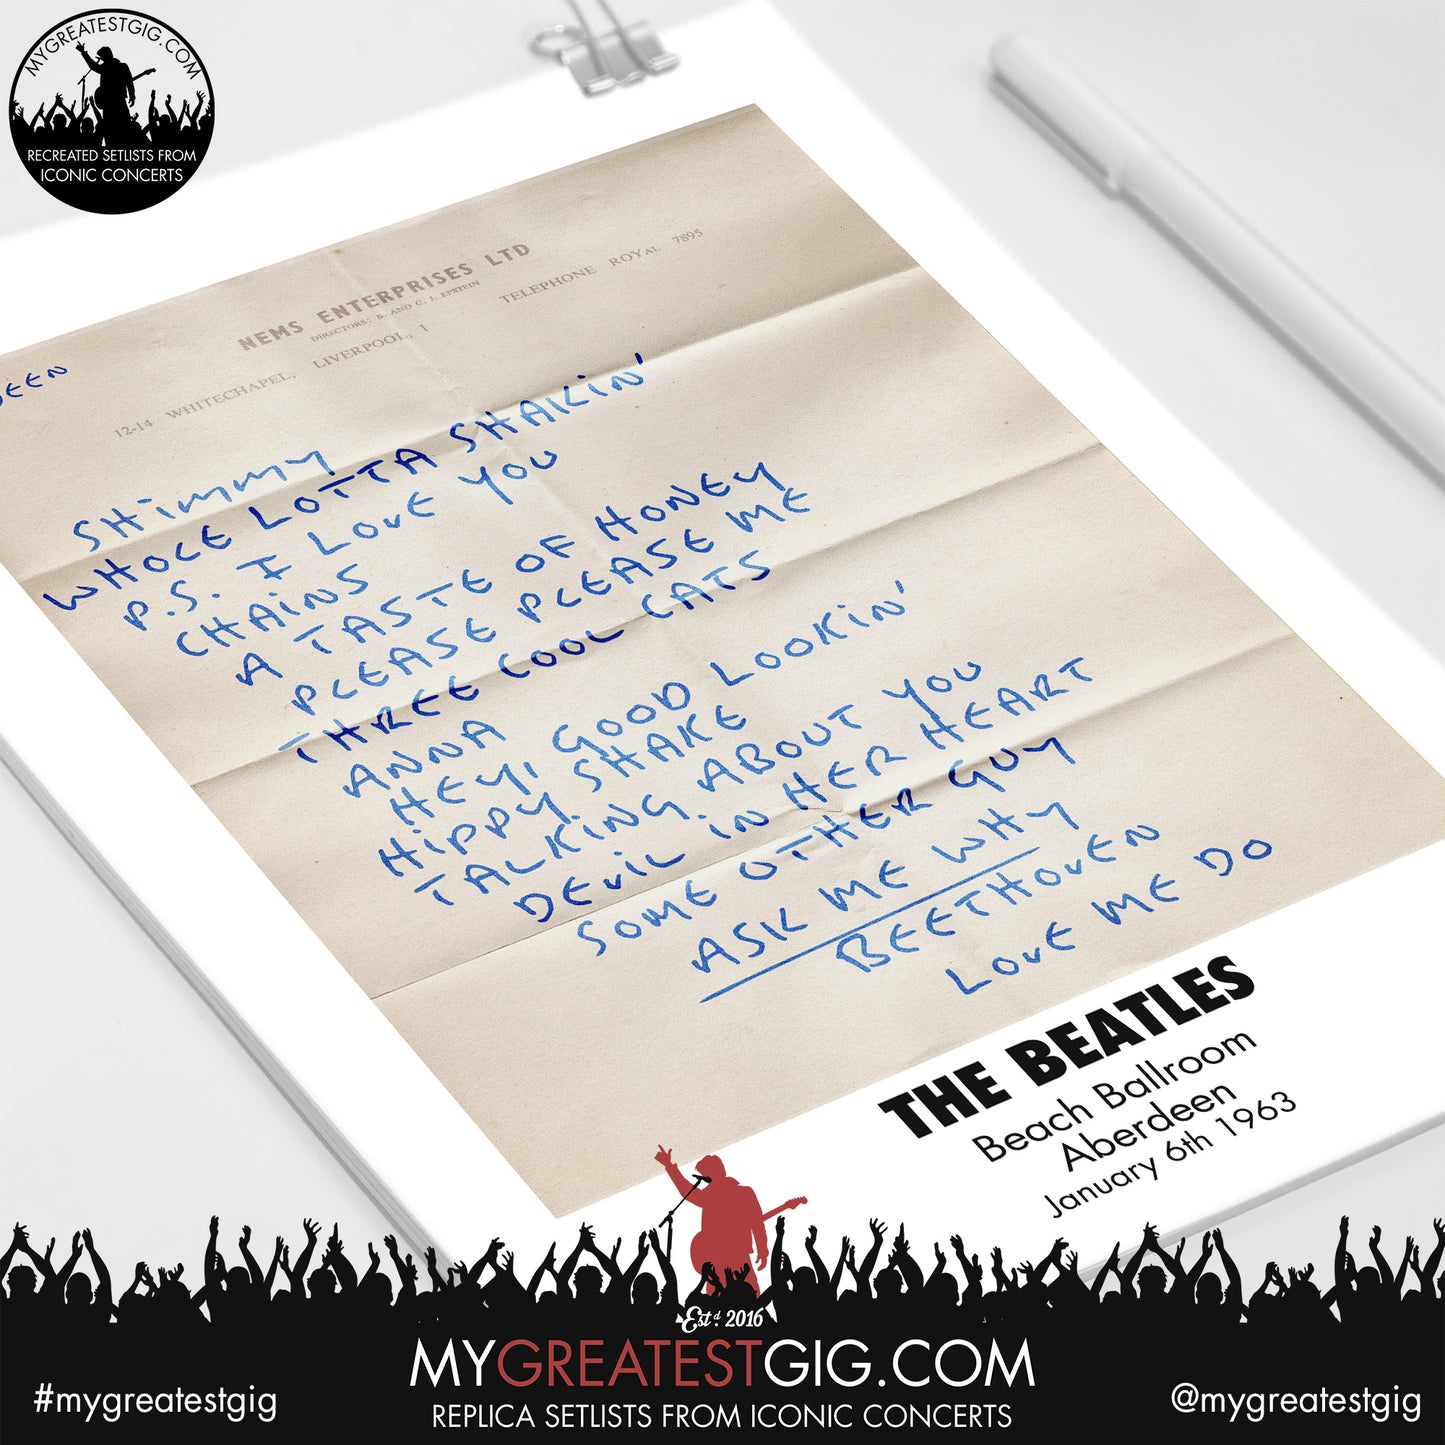 MYGREATESTGIG.COM
RECREATED SETLISTS FROM
ICONIC CONCERTS
NEMS ENTERPRISES LTD
DIRECTORS: B. AND C. J. EPSTEIN
12-14 WHITECHAPEL, LIVERPOOL, 1 TELEPHONE ROYAL 7895
EEN
SHIMMY
WHOLE LOTTA SHAKIN'
P.S. I LOVE YOU
CHAINS
A TASTE OF HONEY
PLEASE PLEASE ME
THREE COOL CATS
ANNA
HEY, GOOD LOOKIN'
HIPPY SHAKE
TALKING ABOUT YOU
DEVIL IN HER HEART
SOME OTHER GUY
ASK ME WHY
BEETHOVEN
LOVE ME DO
THE BEATLES
Beach Ballroom
Aberdeen
January 6th 1963
Estd. 2016
MYGREATESTGIG.COM
#mygreatestgig
REPLICA SETLISTS FROM ICONIC CONCERTS
@mygreatestgig